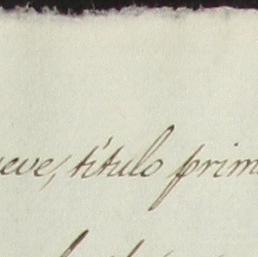 eve, título prim